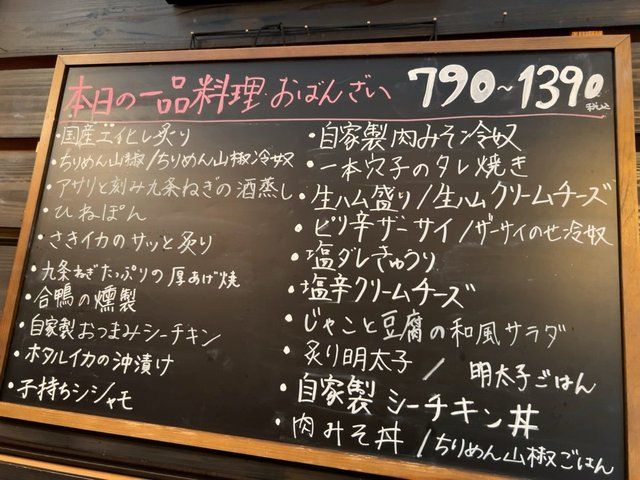 本日の一品料理・おばんざい 790~1390 税込
・国産エビし炙り
・ちりめん山椒/ちりめん山椒冷奴
・アサリと刻み九条ねぎの酒蒸し
・ひねぽん
・さきイカのサッと炙り
・九条ねぎたっぷりの厚あげ焼
・合鴨の燻製
・自家製おつまみシーチキン
・ホタルイカの沖漬け
・子持ちシシャモ
・自家製肉みそ冷奴
・一本穴子のタレ焼き
・生ハム盛り/生ハムクリームチーズ
・ピリ辛ザーサイ/ザーサイのせ冷奴
・塩ダレきゅうり
・塩辛クリームチーズ
・じゃこと豆腐の和風サラダ
・炙り明太子 / 明太子ごはん
・自家製シーチキン丼
・肉みそ丼/ちりめん山椒ごはん